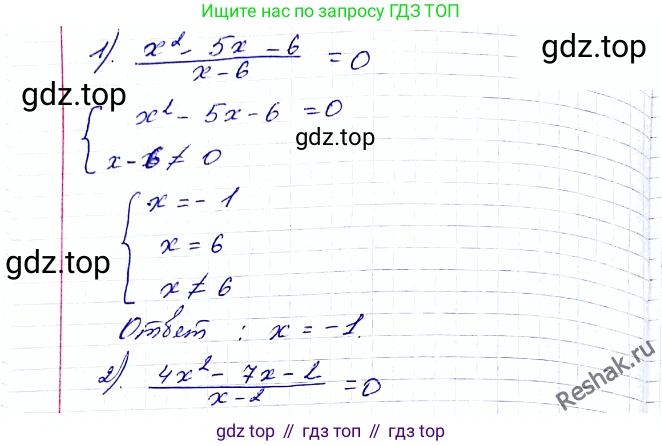 Ищите нас по запросу ГДЗ ТОП
1). x² - 5x - 6 / x - 6 = 0
gdz.top
gdz.top
{ x² - 5x - 6 = 0
gdz.top
x - 6 ≠ 0
{ x = - 1
x = 6
gdz.top
gdz.top
x ≠ 6
Ответ : x = -1.
2). 4x² - 7x - 2 / x - 2 = 0
Reshak.ru
gdz.top // гдз топ // гдз top